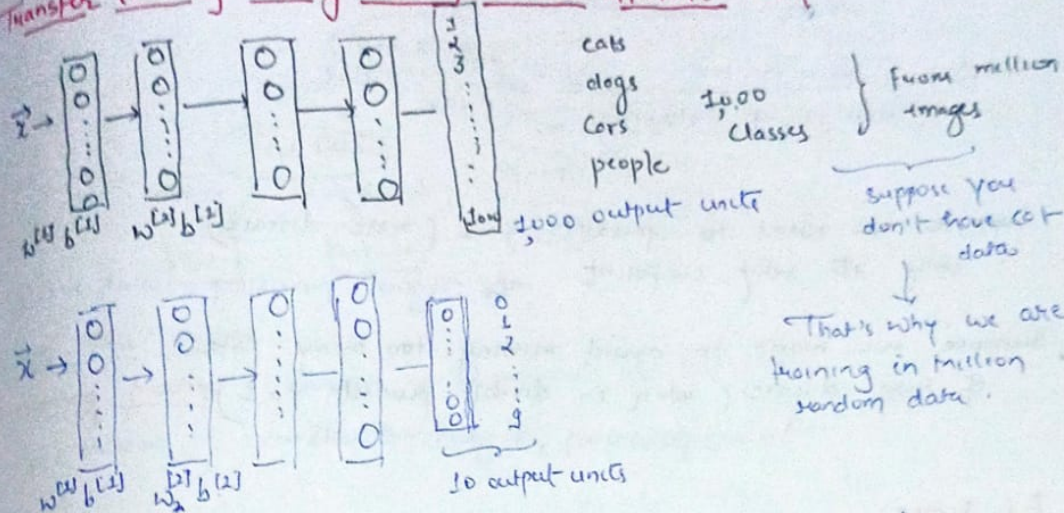 Transfer
1
2
3
cats
dogs
cars
people
10,00
classes
From million
images
x⃗ →
w[1] b[1]
w[2] b[2]
1,000 output units
suppose you
don't have cat
data
That's why we are
training in million
random data.
x⃗ →
0
1
2
9
w[1] b[1]
w2[2] b[2]
10 output units